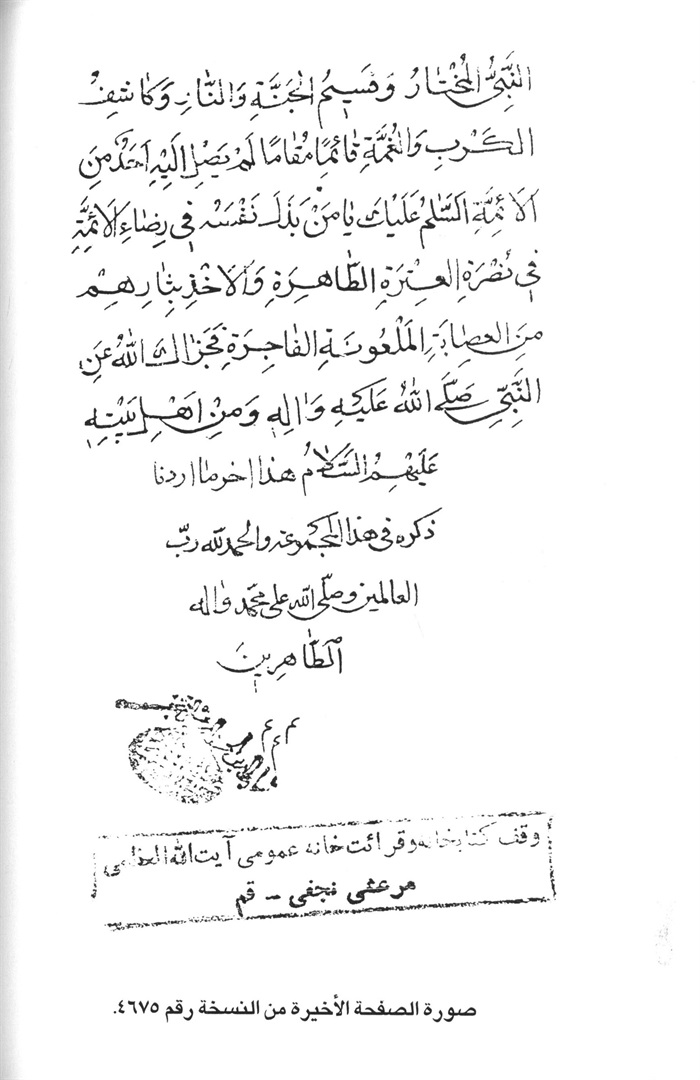 النَّبِيُّ المُخْتٰارُ وَقَسيٖمُ الْجَنَّةِ وَالنّٰارِ وَكٰاشِفُ
الكَرْبِ وَالْغُمَّةِ قٰائِمًا مُقٰامًا لَمْ يَصِلْ اِلَيْهِ اَحَدٌ مِنَ
الاَئِمَّةِ اَلسَّلٰمُ عَلَيْكَ يٰا مَنْ بَذَلَ نَفْسَهُ فيٖ رِضٰاءِ الاَئِمَّةِ
فيٖ نُصْرَةِ العِتْرَةِ الطّٰاهِرَةِ وَالاَخْذِ بِثٰارِهِمْ
مِنَ العِصٰابَةِ المَلْعُونَةِ الفٰاجِرَةِ فَجَزٰاكَ اللّٰهُ عَنِ
النَّبِيِّ صَلَّى اللّٰهُ عَلَيْهِ وَاٰلِهٖ وَمِنْ اَهْلِ بَيْتِهٖ
عَلَيْهِمُ السَّلاٰمُ هذا اخر ما اردنا
ذكره فى هذا المجموعه والحمد لله ربّ
العالمين وصلّى الله على محمّد وٰاله
الطّٰاهِريٖنَ
م م م م
وقف كتابخانه وقرائت خانه عمومى آيت الله العظمى
مرعشى نجفى - قم
صورة الصفحة الأخيرة من النسخة رقم ٤٦٧٥.